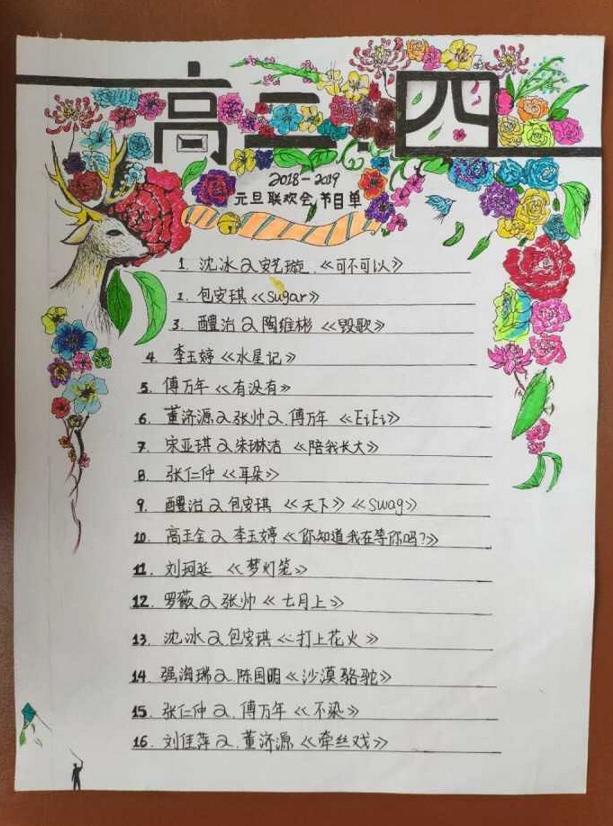 高三.四
2018-2019
元旦联欢会节目单
1. 沈冰&安艺璇《可不可以》
2. 包安琪《Sugar》
3. 醴治&陶维彬《毁歌》
4. 李玉婷《水星记》
5. 傅万年《有没有》
6. 董济源&张帅&傅万年《EiEi》
7. 宋亚琪&朱琳洁《陪我长大》
8. 张仁仲《耳朵》
9. 醴治&包安琪《天下》《Swag》
10. 高玉全&李玉婷《你知道我在等你吗?》
11. 刘珂延《梦灯笼》
12. 罗薇&张帅《七月上》
13. 沈冰&包安琪《打上花火》
14. 强海瑞&陈国明《沙漠骆驼》
15. 张仁仲&傅万年《不染》
16. 刘佳萍&董济源《牵丝戏》